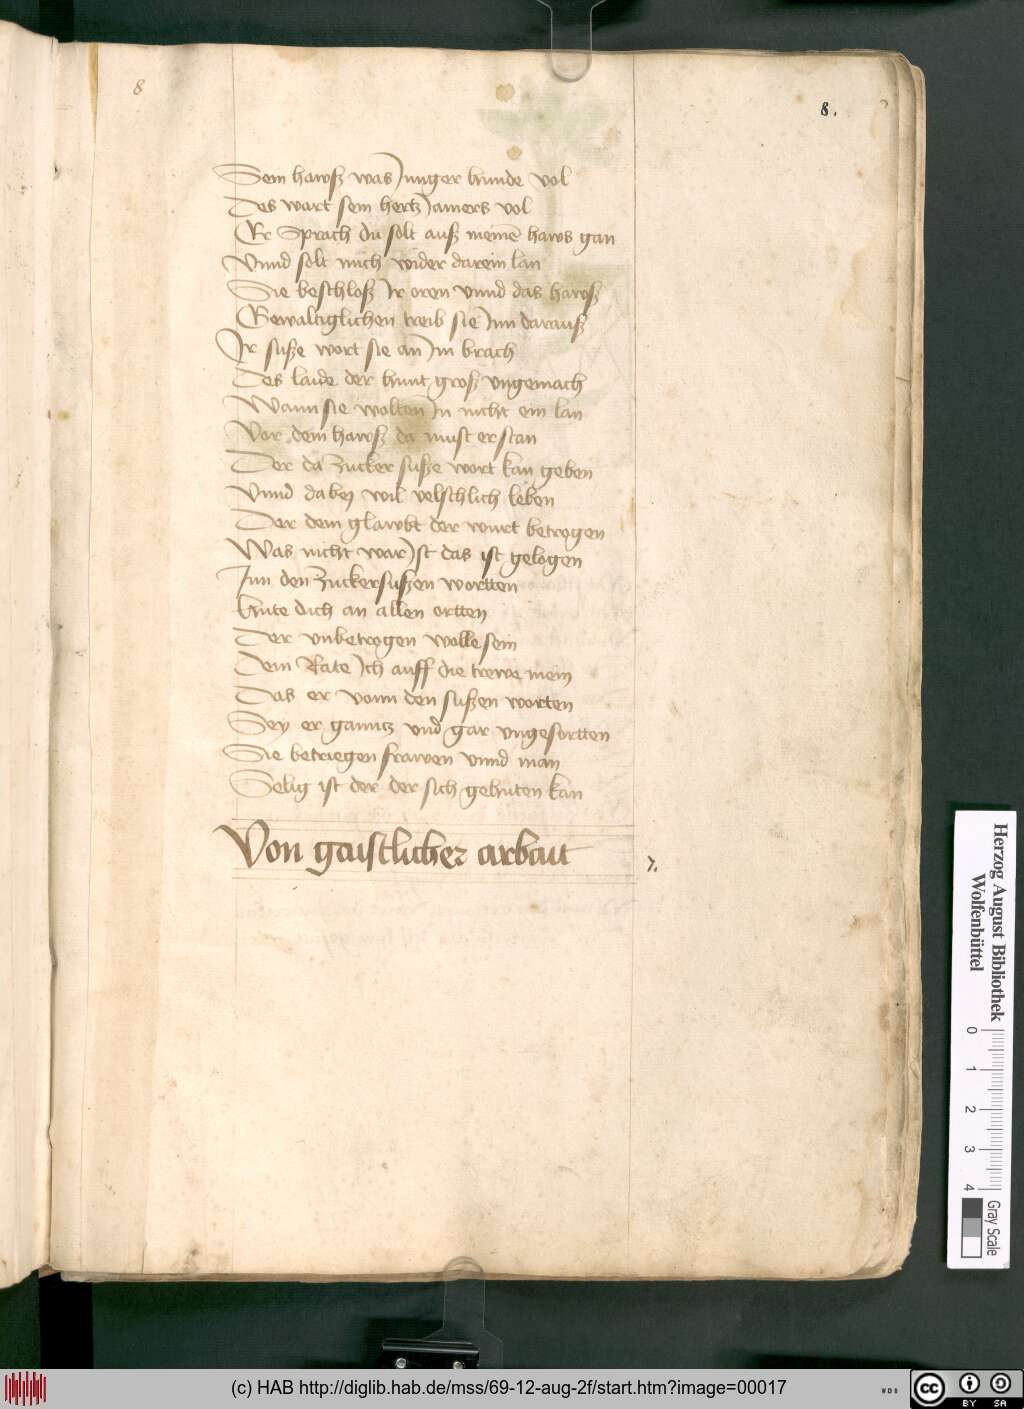 8
8.
Sein hawsz was Junger hunde vol
Des wart sein hertz Jamers vol
Er Sprach du solt ausz meinē haws gan
Vnnd solt mich wider darein lan
Sie beschlosz Ir oren vnnd das hawsz
Gewaltiglichen treib sie Inn darausz
Ir susze wort sie an Im brach
Des laide der hunt grosz vngemach
Wann sie wolten In nicht ein lan
Vor dem hawsz da must er stan
Der da Zucker susze wort kan geben
Vnnd dabej wil velschlich leben
Der dem glawbt der wurt betrogen
Was nicht war Ist das ist gelogen
Inn den Zuckersuszen wortten
hute dich an allen ortten
Der vnbetrogen wolle sein
Dem Rate Ich auff die trewe mein
Das er vonn den suszen worten
Sey er ganncz vnd gar vngesortten
Sie betriegen frawen vnnd man
Selig ist der der sich gehuten kan
Von gaistlicher arbait
7.
Herzog August Bibliothek
Wolfenbüttel
0 1 2 3 4
Gray Scale
(c) HAB http://diglib.hab.de/mss/69-12-aug-2f/start.htm?image=00017
WDB
cc BY SA